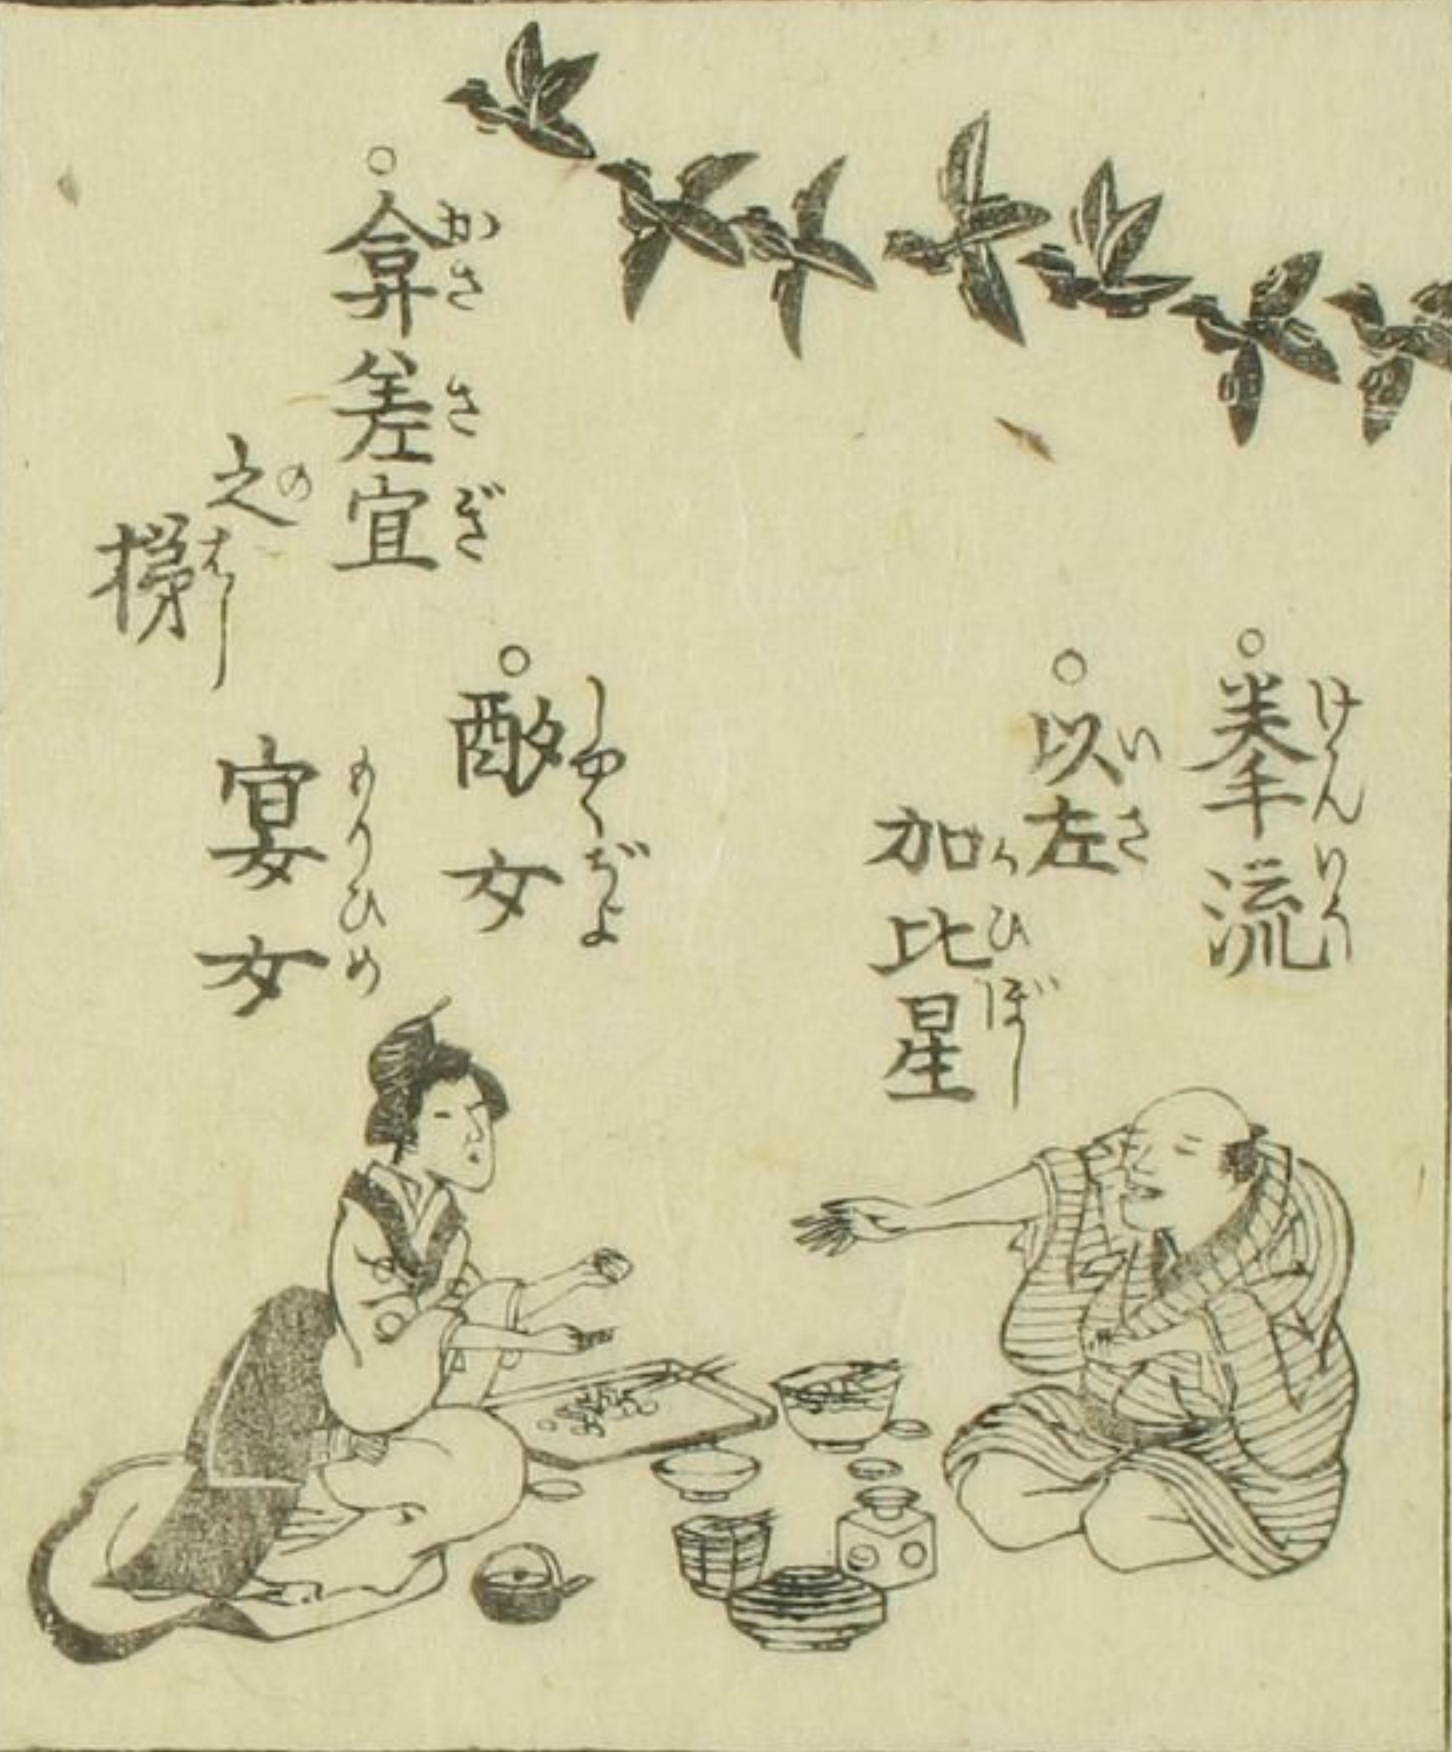 ○拳流
けんりう
○以左
いさ
加比星
かひぼし
女
しゆくぢよ
宴女
もりひめ
○弇差宜
かささぎ
之
の
はし